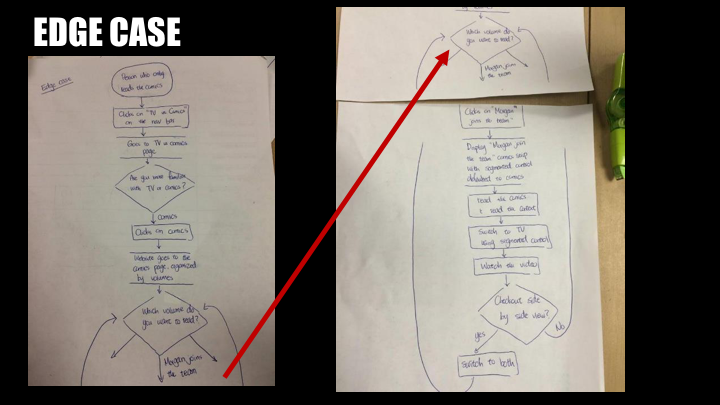 EDGE CASE
Edge case
Person who only
reads the comics
Clicks on "TV vs Comics"
on the nav bar
Goes to TV vs comics
page
Are you more familiar
with TV or comics?
comics
Clicks on comics
Website goes to the
comics page, organized
by volumes
Which volume do
you want to read?
Morgan joins
the team
Which volume do
you want to read?
Morgan joins
the team
Clicks on "Morgan
joins the team"
Display "Morgan join
the team" comics
with segmented control
defaulted to comics
read the comics
& read the context
Switch to TV
using segmented control
Watch the video
Checkout side
by side view?
yes
No
Switch to both